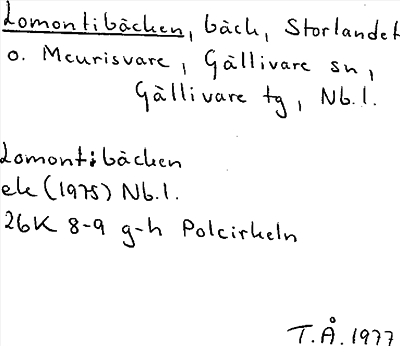 Lomontibäcken, bäck, Storlandet
o. Meurisvare, Gällivare sn,
Gällivare tg, Nb.l.
Lomontibäcken
ek (1975) Nb.l.
26K 8-9 g-h Polcirkeln
T.Å. 1977